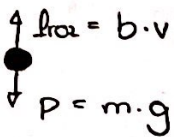 froz = b·v
P = m·g